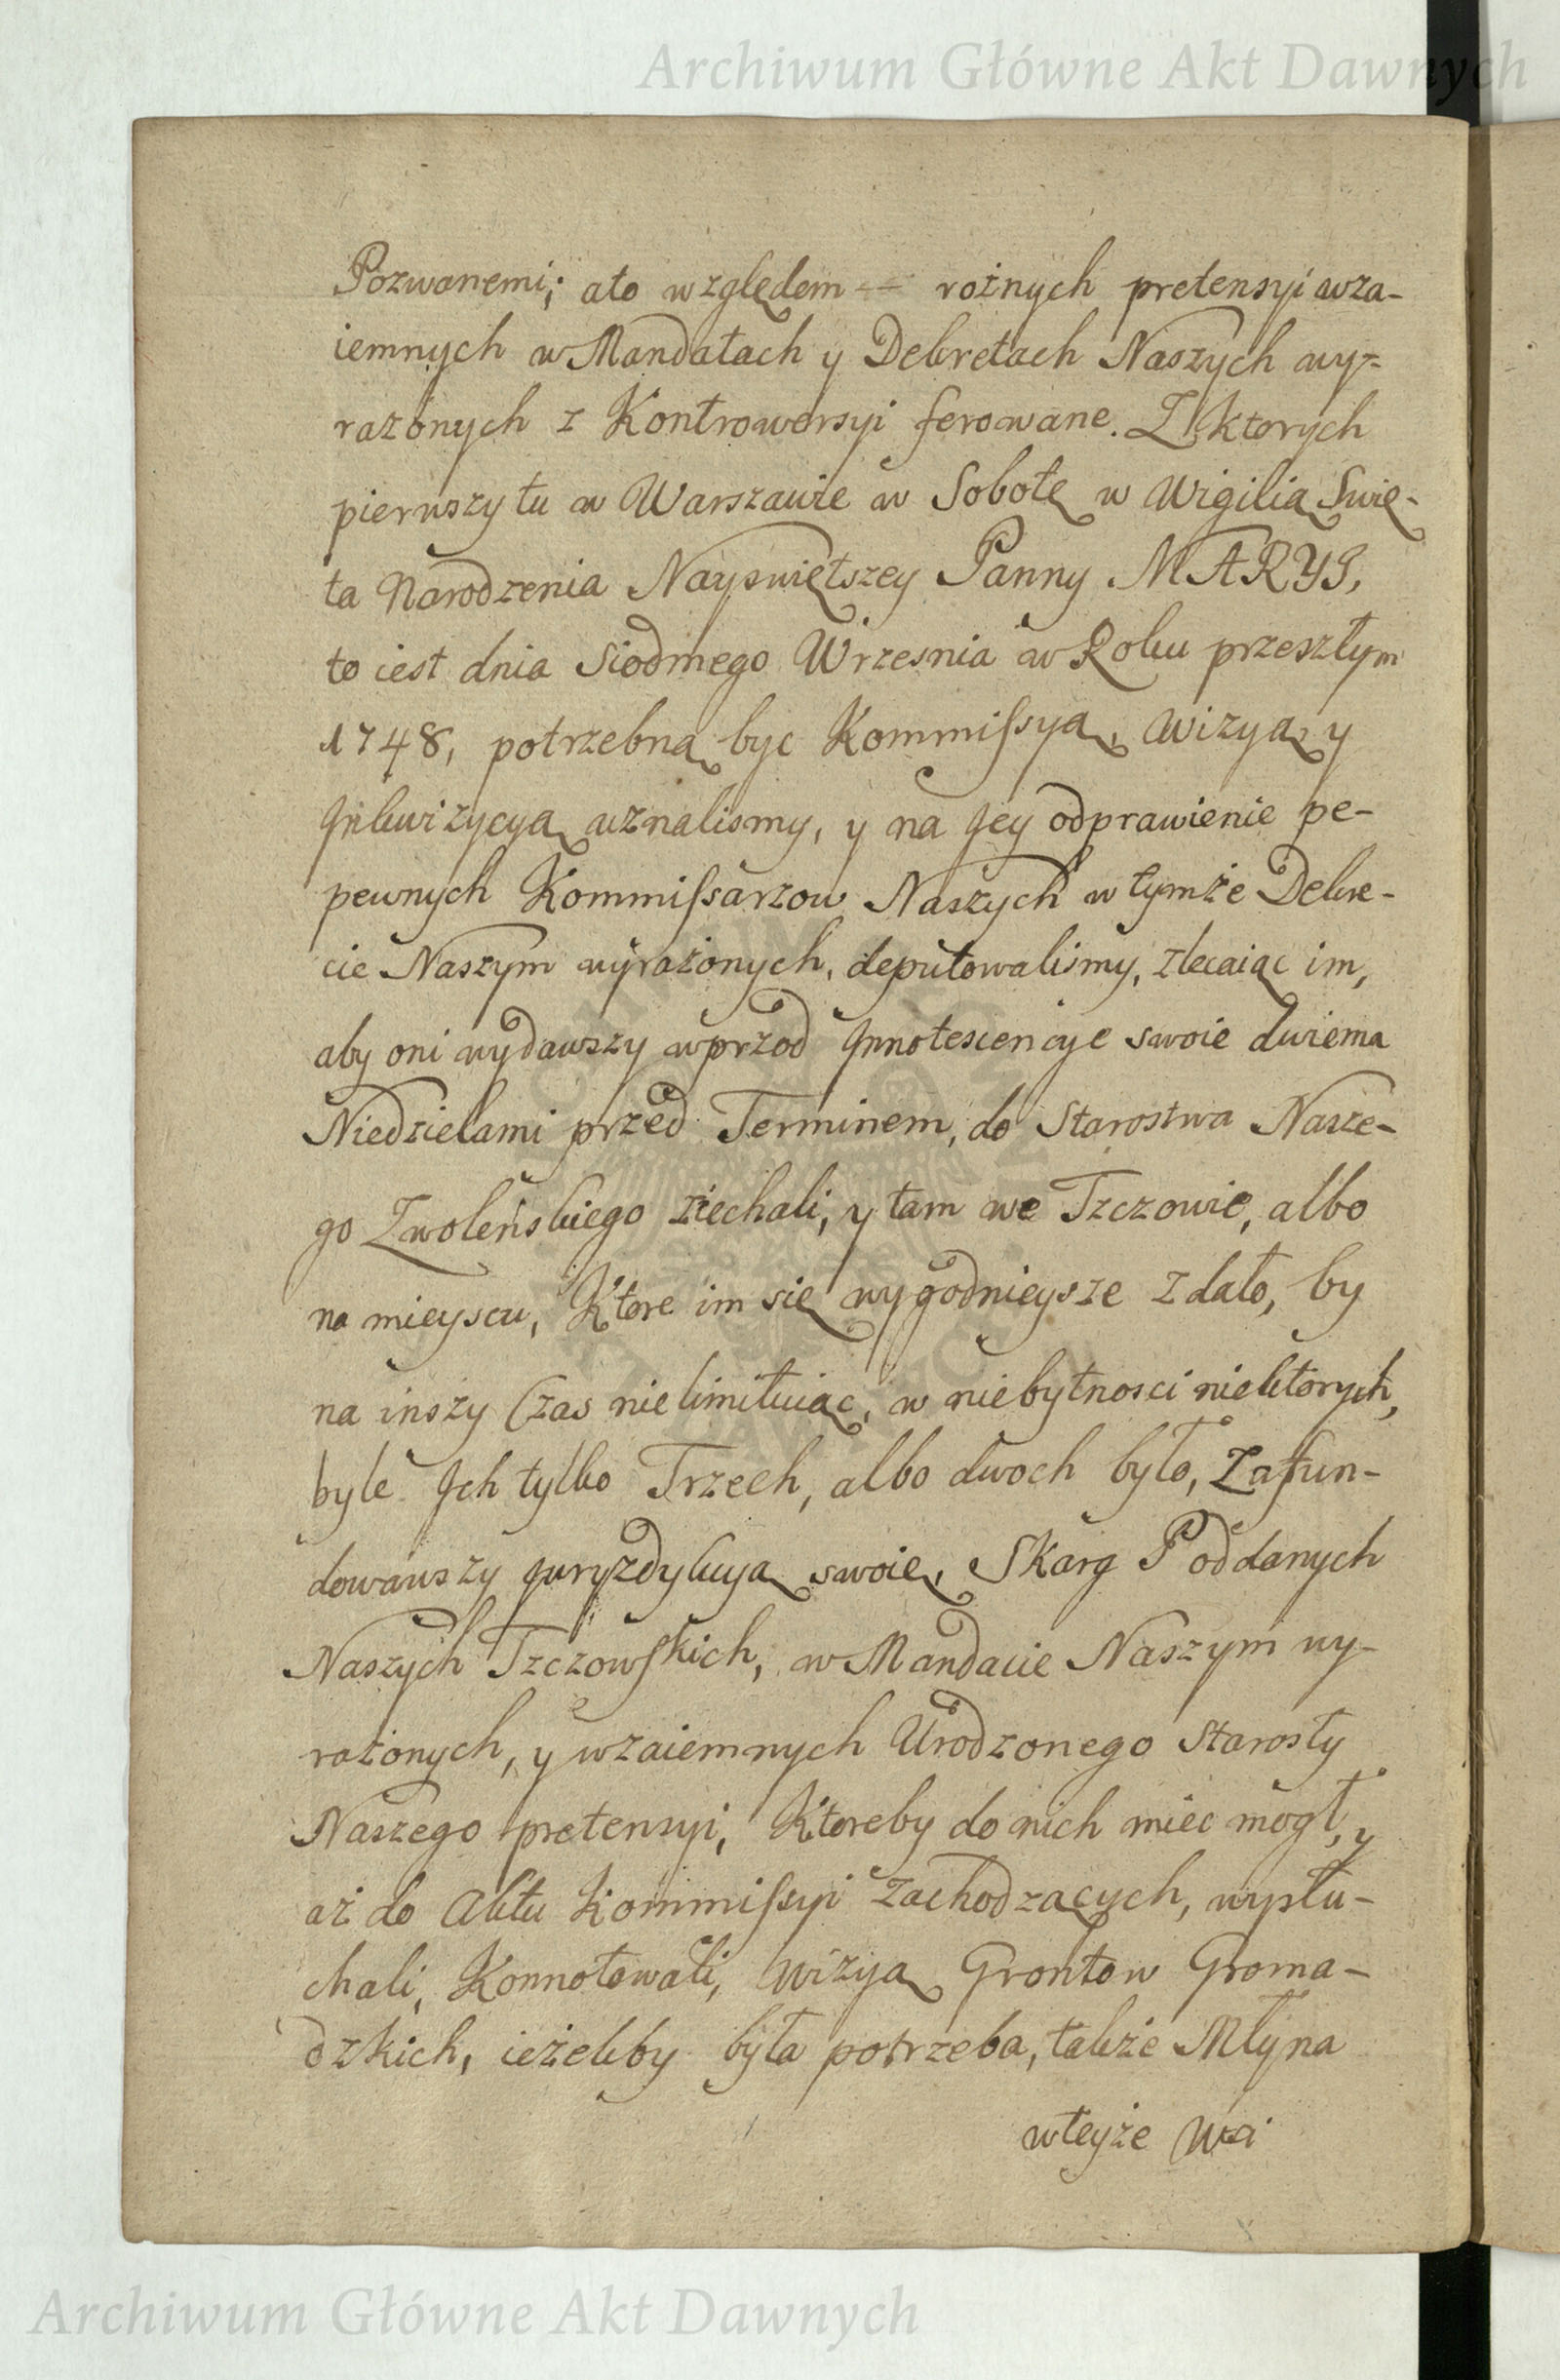 Archiwum Główne Akt Dawnych
Pozwanemi; ato względem rożnych pretensyi wza-
iemnych w Mandatach y Dekretach Naszych wy-
rażonych z Kontrowersyi ferowane. Z ktorych
pierwszy tu w Warszawie w Sobotę w Wigilią Swię-
ta Narodzenia Nayswiętszey Panny MARYI,
to iest dnia Siodmego Wrzesnia w Roku przeszłym
1748, potrzebną byc Kommissyą, Wizyą y
Inkwizycyą uznalismy, y na Jey odprawienie pe-
pewnych Kommissarzow Naszych w tymże Dekre-
cie Naszym wyrażonych, deputowalismy, zlecaiąc im,
aby oni wydawszy wprzod Innotescencye swoie dwiema
Niedzielami przed Terminem, do Starostwa Nasze-
go Zwoleńskiego ziechali, y tam we Tzczowie, albo
na mieyscu, Ktore im się wygodnieysze zdało, by
na inszy Czas nie limituiąc, w niebytnosci niektorych,
byle Ich tylko Trzech, albo dwoch było, Zafun-
dowawszy Juryzdykcyą swoię, Skarg Poddanych
Naszych Tzczowskich, w Mandacie Naszym wy-
rażonych, y wzaiemnych Urodzonego Starosty
Naszego pretensyi, Ktoreby do nich miec mogł, y
aż do Aktu Kommissyi Zachodzących, wysłu-
chali, Konnotowali, Wizyą Grontow Groma-
dzkich, ieżeliby była potrzeba, także Młyna
wteyże Wsi
Archiwum Główne Akt Dawnych